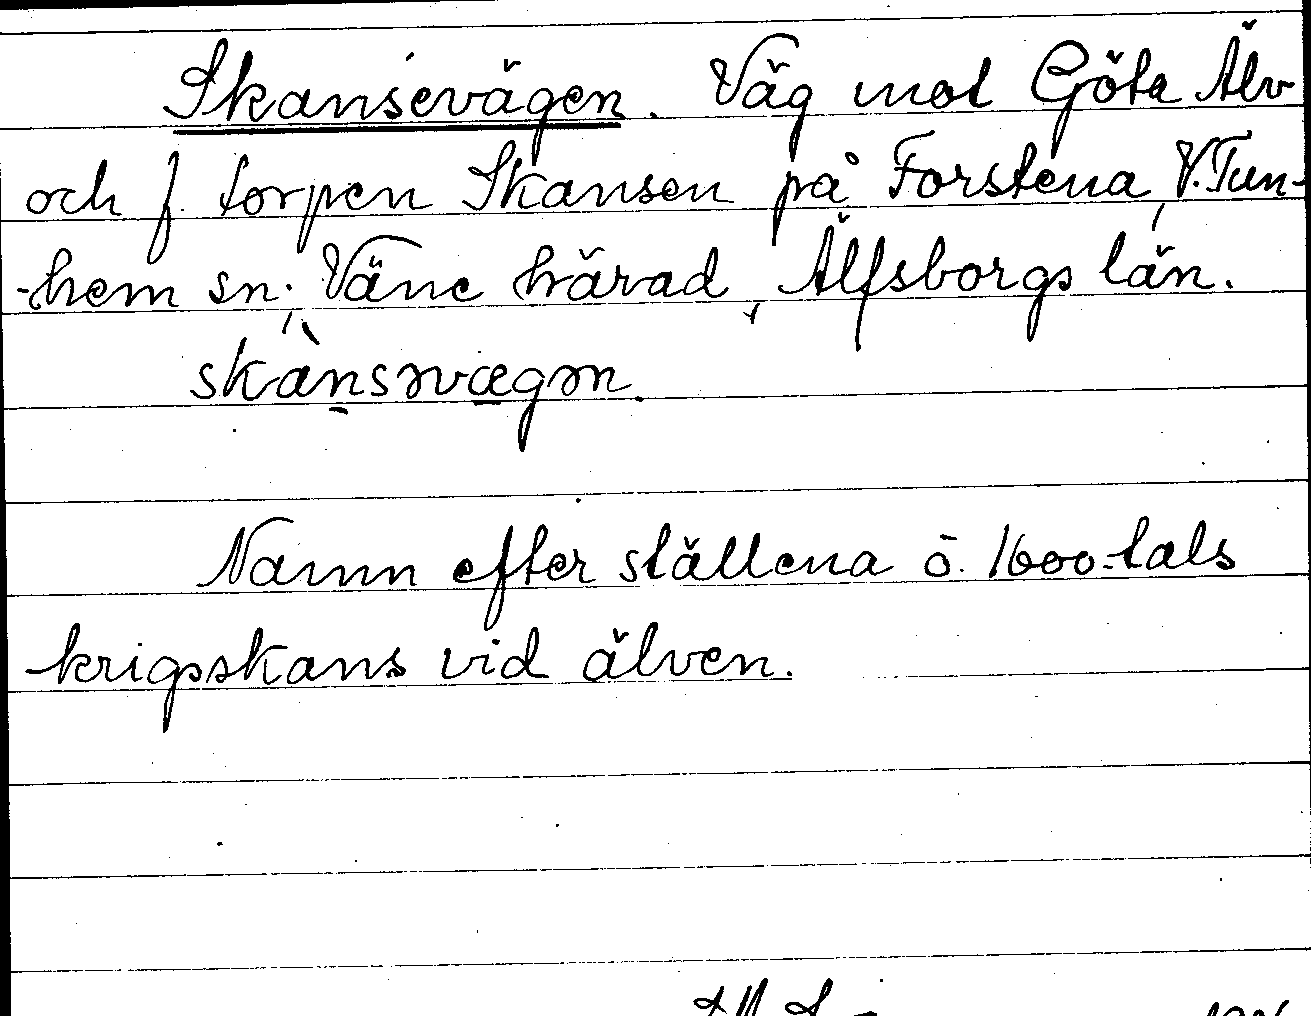 Skansevägen. Väg mot Göta Älv
och f. torpen Skansen på Forstena, V. Tun-
-hem sn., Väne härad, Älfsborgs län.
skànsəvægən.
Namn efter ställena o. 1600-tals
krigsskans vid älven.